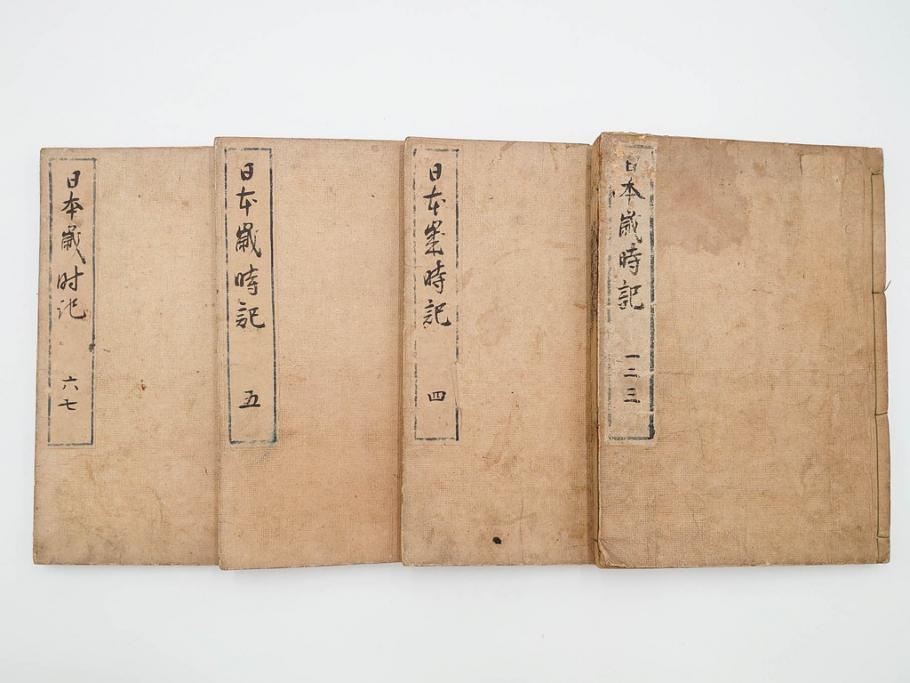 日本歳時記 一二三
日本歳時記 四
日本歳時記 五
日本歳时记 六七